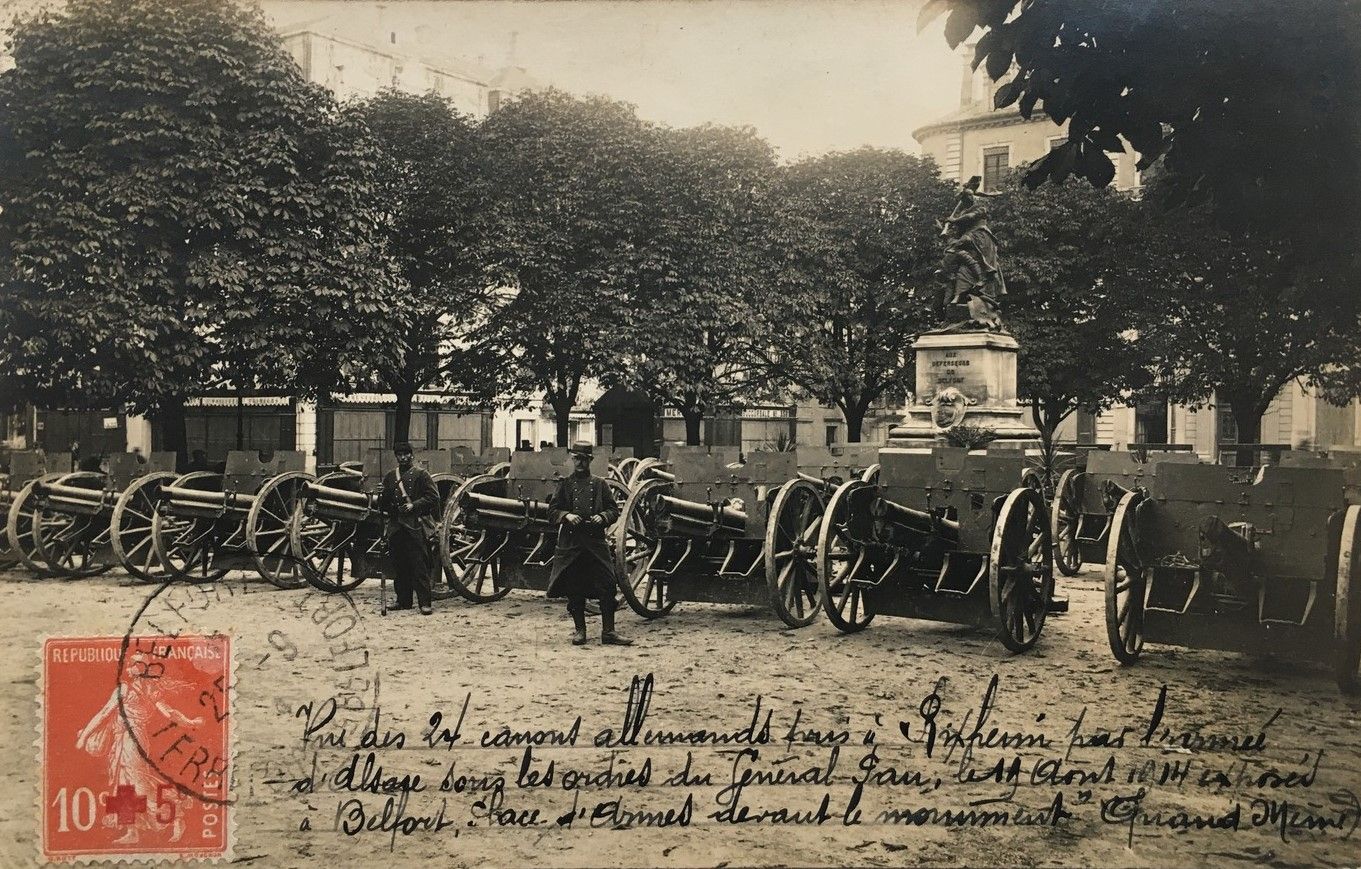 AUX
DÉFENSEURS
DE
BELFORT
REPUBLIQUE FRANÇAISE
10c + 5c
POSTES
BELFORT
TERR
BELFORT
Vue des 24 canons allemands pris à Rixheim par l'armée
d'Alsace sous les ordres du Général Pau, le 19 Août 1914 exposés
à Belfort, Place d'Armes devant le monument "Quand Même"